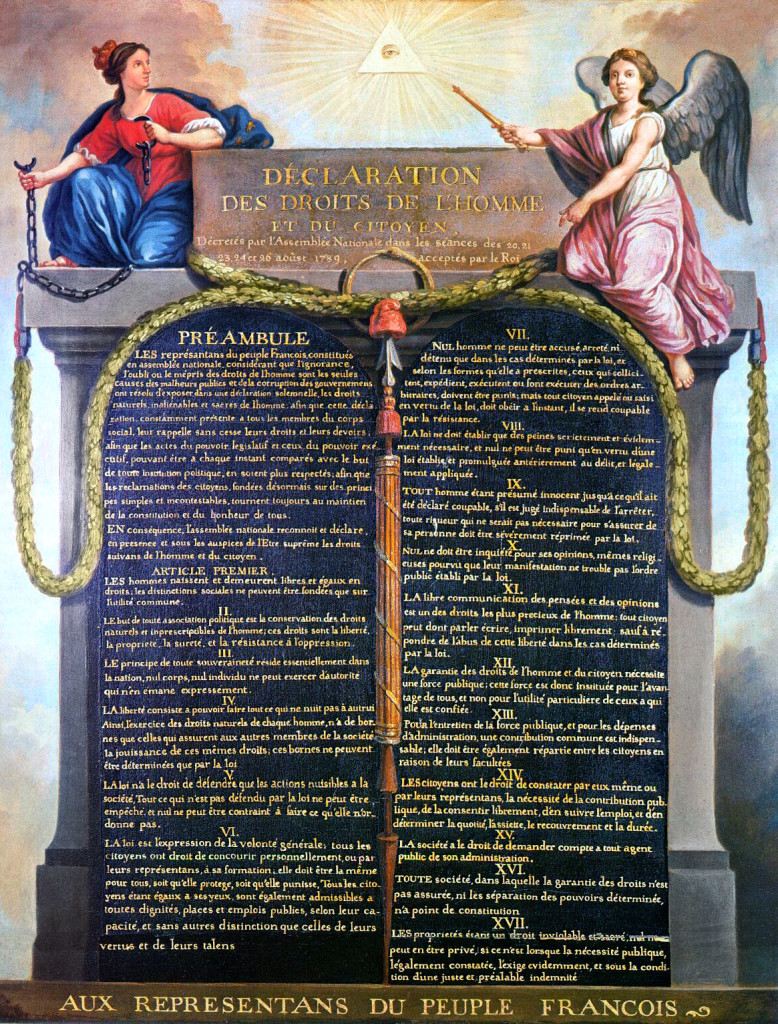 DÉCLARATION
DES DROITS DE L'HOMME
ET DU CITOYEN,
Décretés par l'Assemblée Nationale dans les séances des 20, 21
23, 24 et 26 aoûst 1789, acceptés par le Roi
PRÉAMBULE
LES représantans du peuple Francois, constitués
en assemblée nationale, considérant que l'ignorance,
l'oubli ou le mépris des droits de l'homme sont les seules
causes des malheurs publics et de la corruption des gouvernemens
ont résolu d'exposer dans une déclaration solemnelle, les droits
naturels, inaliénables et sacrés de l'homme; afin que cette décla
ration, constamment présente a tous les membres du corps
social, leur rappelle sans cesse leurs droits et leurs devoirs;
afin que les actes du pouvoir législatif et ceux du pouvoir exé
cutif, pouvant être a chaque instant comparés avec le but
de toute institution politique, en soient plus respectés; afin que
les reclamations des citoyens, fondées désormais sur des princi
pes simples et incontestables, tournent toujours au maintien
de la constitution et du bonheur de tous.
EN conséquence, l'assemblée nationale reconnoit et déclare,
en presence et sous les auspices de l'Etre suprême les droits
suivans de l'homme et du citoyen.
ARTICLE PREMIER.
LES hommes naissent et demeurent libres et égaux en
droits. les distinctions sociales ne peuvent être fondées que sur
l'utilité commune.
II.
LE but de toute association politique est la conservation des droits
naturels et inprescriptibles de l'homme; ces droits sont la liberté,
la proprieté, la sureté, et la résistance à l'oppression.
III.
LE principe de toute souveraineté réside essentiellement dans
la nation, nul corps, nul individu ne peut exercer d'autorité
qui n'en émane expressement.
IV.
LA liberté consiste a pouvoir faire tout ce qui ne nuit pas à autrui
Ainsi, l'exercice des droits naturels de chaque homme, n'a de bor-
nes que celles qui assurent aux autres membres de la société
la jouissance de ces mêmes droits; ces bornes ne peuvent
être déterminées que par la loi
V.
LA loi n'a le droit de défendre que les actions nuisibles a la
société. Tout ce qui n'est pas défendu par la loi ne peut être
empêché, et nul ne peut être contraint à faire ce qu'elle n'or-
donne pas.
VI.
LA loi est l'expression de la volonté générale; tous les
citoyens ont droit de concourir personnellement, ou par
leurs représentans, à sa formation; elle doit être la même
pour tous, soit qu'elle protege, soit qu'elle punisse, Tous les cito
yens étant égaux a ses yeux, sont également admissibles a
toutes dignités, places et emplois publics, selon leur ca-
pacité, et sans autres distinction que celles de leurs
vertus et de leurs talens
VII.
NUL homme ne peut être accusé, arreté, ni
détenu que dans les cas déterminés par la loi, et
selon les formes qu'elle a prescrites, ceux qui sollici-
tent, expédient, exécutent ou font exécuter des ordres ar-
bitraires, doivent être punis; mais tout citoyen appelé ou saisi
en vertu de la loi, doit obéir a l'instant, il se rend coupable
par la résistance.
VIII.
LA loi ne doit établir que des peines strictement et évidem-
ment nécessaire, et nul ne peut être puni qu'en vertu d'une
loi établie et promulguée antérierement au délit, et légale-
ment appliquée.
IX.
TOUT homme étant présumé innocent jusqu'a ce qu'il ait
été déclaré coupable, s'il est jugé indispensable de l'arrêter,
toute rigueur qui ne serait pas nécessaire pour s'assurer de
sa personne doit être sévèrement réprimée par la loi.
X.
NUL ne doit être inquiété pour ses opinions, mêmes religi-
euses pourvu que leur manifestation ne trouble pas l'ordre
public établi par la loi.
XI.
LA libre communication des pensées et des opinions
est un des droits les plus precieux de l'homme; tout citoyen
peut dont parler écrire, imprimer librement; sauf à ré-
pondre de l'abus de cette liberté dans les cas déterminés
par la loi.
XII.
LA garantie des droits de l'homme et du citoyen nécessite
une force publique; cette force est donc instituée pour l'avan-
tage de tous, et non pour l'utilité particuliere de ceux a qui
elle est confiée.
XIII.
Pour l'entretien de la force publique, et pour les dépenses
d'administration, une contribution commune est indispen-
sable; elle doit être également répartie entre les citoyens en
raison de leurs facultées
XIV.
LES citoyens ont le droit de constater par eux même ou
par leurs représentans, la nécessité de la contribution pub-
lique, de la consentir librement, d'en suivre l'emploi, et d'en
déterminer la quotité, l'assiette, le recouvrement et la durée.
XV.
LA société a le droit de demander compte a tout agent
public de son administration.
XVI.
TOUTE société, dans laquelle la garantie des droits n'est
pas assurée, ni les séparation des pouvoirs déterminée,
n'a point de constitution
XVII.
LES proprietés étant un droit inviolable et sacré, nul ne
peut en être privé, si ce n'est lorsque la nécessité publique,
légalement constatée, l'exige evidemment, et sous la condi
tion d'une juste et préalable indemnité
AUX REPRESENTANS DU PEUPLE FRANCOIS